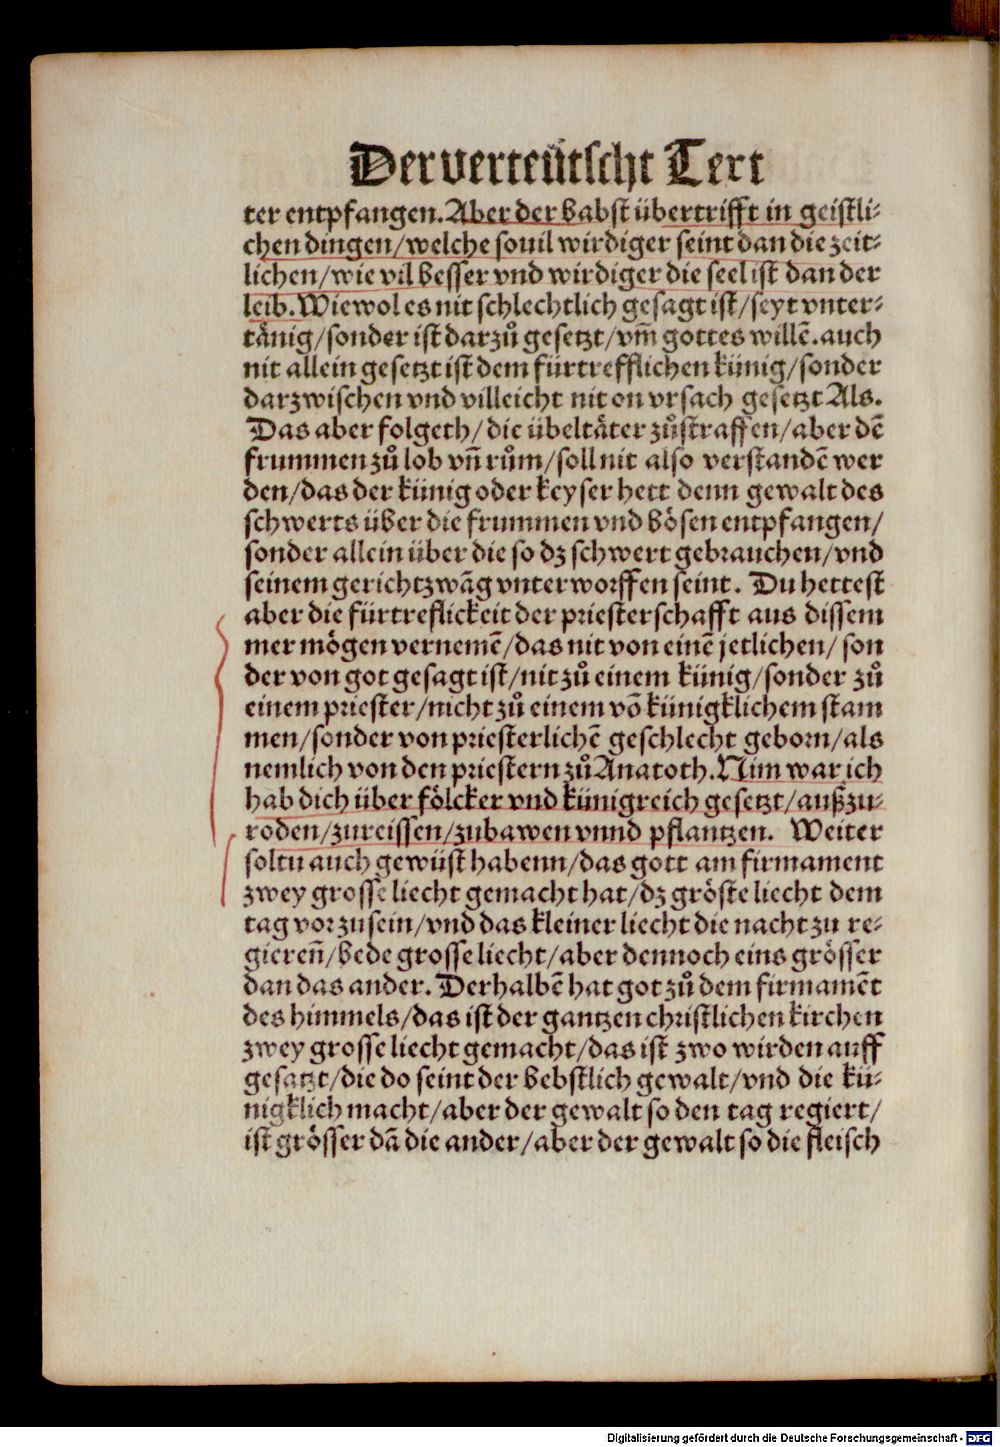 Der verteütscht Text
ter entpfangen. Aber der babst übertrifft in geistli-
chen dingen/welche souil wirdiger seint dan die zeit-
lichen/wie vil besser vnd wirdiger die seel ist dan der
leib. Wiewol es nit schlechtlich gesagt ist/seyt vnter-
tånig/sonder ist darzů gesetzt/vm̃ gottes willẽ. auch
nit allein gesetzt ist dem fürtrefflichen künig/sonder
darzwischen vnd villeicht nit on vrsach gesetzt Als.
Das aber folgeth/die übeltåter zůstraffen/aber dẽ
frummen zů lob vñ rům/soll nit also verstandẽ wer
den/das der künig oder keyser hett denn gewalt des
schwerts über die frummen vnd bösen entpfangen/
sonder allein über die so dz schwert gebrauchen/vnd
seinem gerichtzwãg vnterworffen seint. Du hettest
aber die fürtreflickeit der priesterschafft aus dissem
mer mögen vernemẽ/das nit von einẽ jetlichen/ son
der von got gesagt ist/nit zů einem künig/sonder zů
einem priester/nicht zů einem võ künigklichem stam
men/sonder von priesterlichẽ geschlecht geborn/als
nemlich von den priestern zů Anatoth. Nim war ich
hab dich über fölcker vnd künigreich gesetzt/außzu-
roden/zureissen/zubawen vnnd pflantzen. Weiter
soltu auch gewüst habenn/das gott am firmament
zwey grosse liecht gemacht hat/dz gröste liecht dem
tag vorzusein/vnd das kleiner liecht die nacht zu re-
giereñ/bede grosse liecht/aber dennoch eins grösser
dan das ander. Derhalbẽ hat got zů dem firmamẽt
des himmels/das ist der gantzen christlichen kirchen
zwey grosse liecht gemacht/das ist zwo wirden auff
gesatzt/die do seint der bebstlich gewalt/vnd die kü-
nigklich macht/aber der gewalt so den tag regiert/
ist grösser dã die ander/aber der gewalt so die fleisch
Digitalisierung gefördert durch die Deutsche Forschungsgemeinschaft - DFG